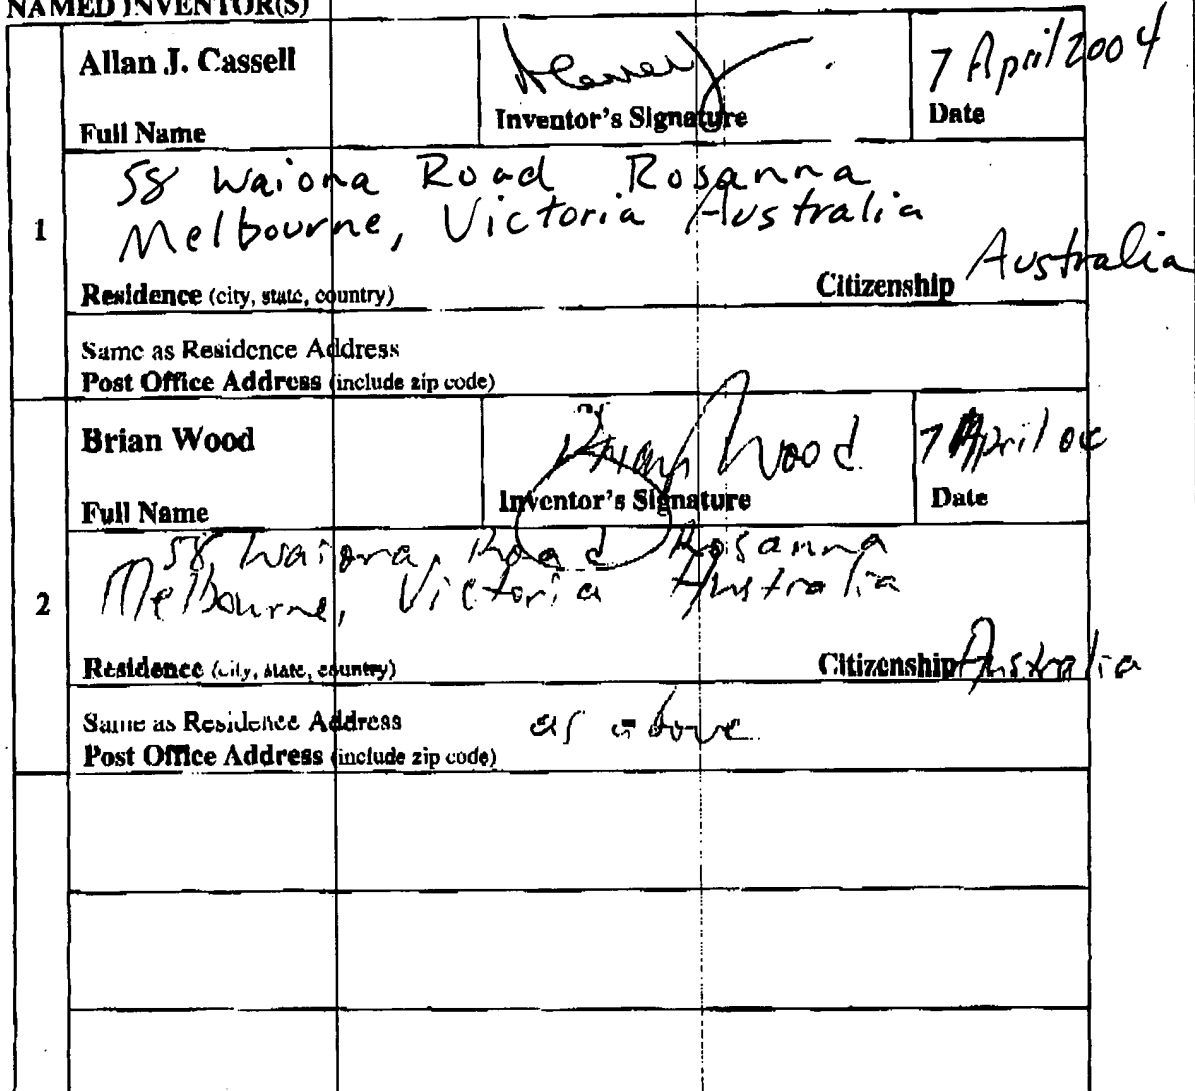 NAMED INVENTOR(S)
Allan J. Cassell
7 April 2004
Full Name
Inventor's Signature
Date
58 Waiona Road Rosanna
Melbourne, Victoria Australia
1
Residence (city, state, country)
Citizenship Australia
Same as Residence Address
Post Office Address (include zip code)
Brian Wood
Brian Wood
7 April 04
Full Name
Inventor's Signature
Date
58 Waiona Road Rosanna
Melbourne, Victoria Australia
2
Residence (city, state, country)
Citizenship Australia
Same as Residence Address as above
Post Office Address (include zip code)